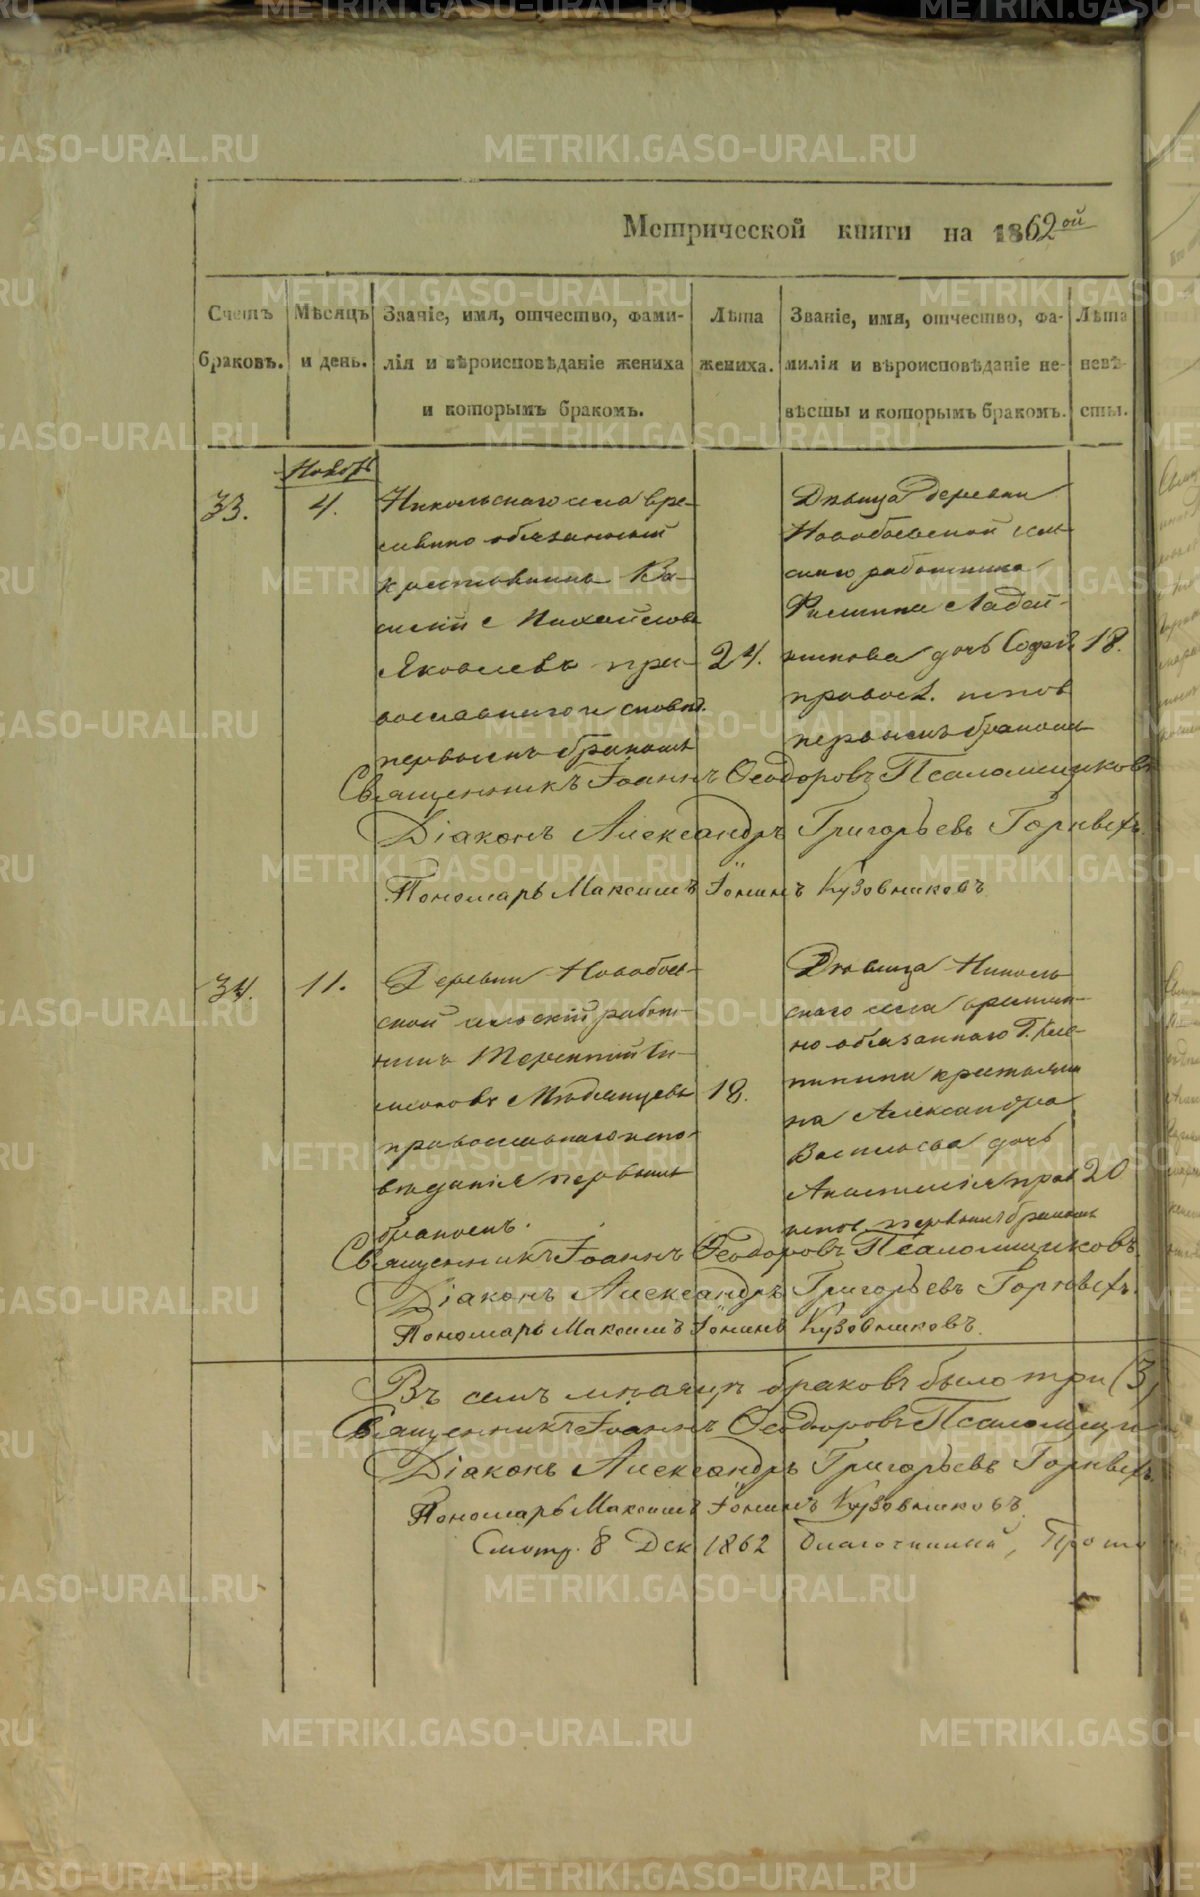 Метрической книги на 1862ой
Счетъ браковъ.
Мѣсяцъ и день.
Званіе, имя, отчество, фами-
лія и вѣроисповѣданіе жениха
и которымъ бракомъ.
Лѣта
жениха.
Званіе, имя, отчество, фа-
милія и вѣроисповѣданіе не-
вѣсты и которымъ бракомъ.
Лѣта
невѣ-
сты.
33.
4.
Никольскаго села вре-
менно обязанный
крестьянинъ Ва-
силій Михайловъ
Яковлевъ пра-
вославнаго исповѣд.
первымъ бракомъ
24.
Дѣвица деревни
Новобоевской сель-
скаго работника
Филиппа
дочь Софія
правосл. испов
первымъ бракомъ
18.
Священникъ Іоаннъ Ѳеодоровъ Псаломщиковъ
Діаконъ Александръ Григорьевъ
Пономарь Максимъ Іонинъ Кузовниковъ
34.
11.
Деревни Новобоев-
ской сельскій работ-
никъ Терентій Си-
моновъ
православнаго испо-
вѣданія первымъ
бракомъ.
18.
Дѣвица Николь-
скаго села времен-
но-обязаннаго
крестьяни-
на Александра
Васильева дочь
Анастасія прав
испов. первымъ бракомъ
20
Священникъ Іоаннъ Ѳеодоровъ Псаломщиковъ
Діаконъ Александръ Григорьевъ
Пономарь Максимъ Іонинъ Кузовниковъ.
Въ семъ мѣсяцѣ браковъ было три (3)
Священникъ Іоаннъ Ѳеодоровъ
Діаконъ Александръ Григорьевъ
Пономарь Максимъ Іонинъ Кузовниковъ
Смотр. 8 Дек 1862 Благочинный, Прото
METRIKI.GASO-URAL.RU